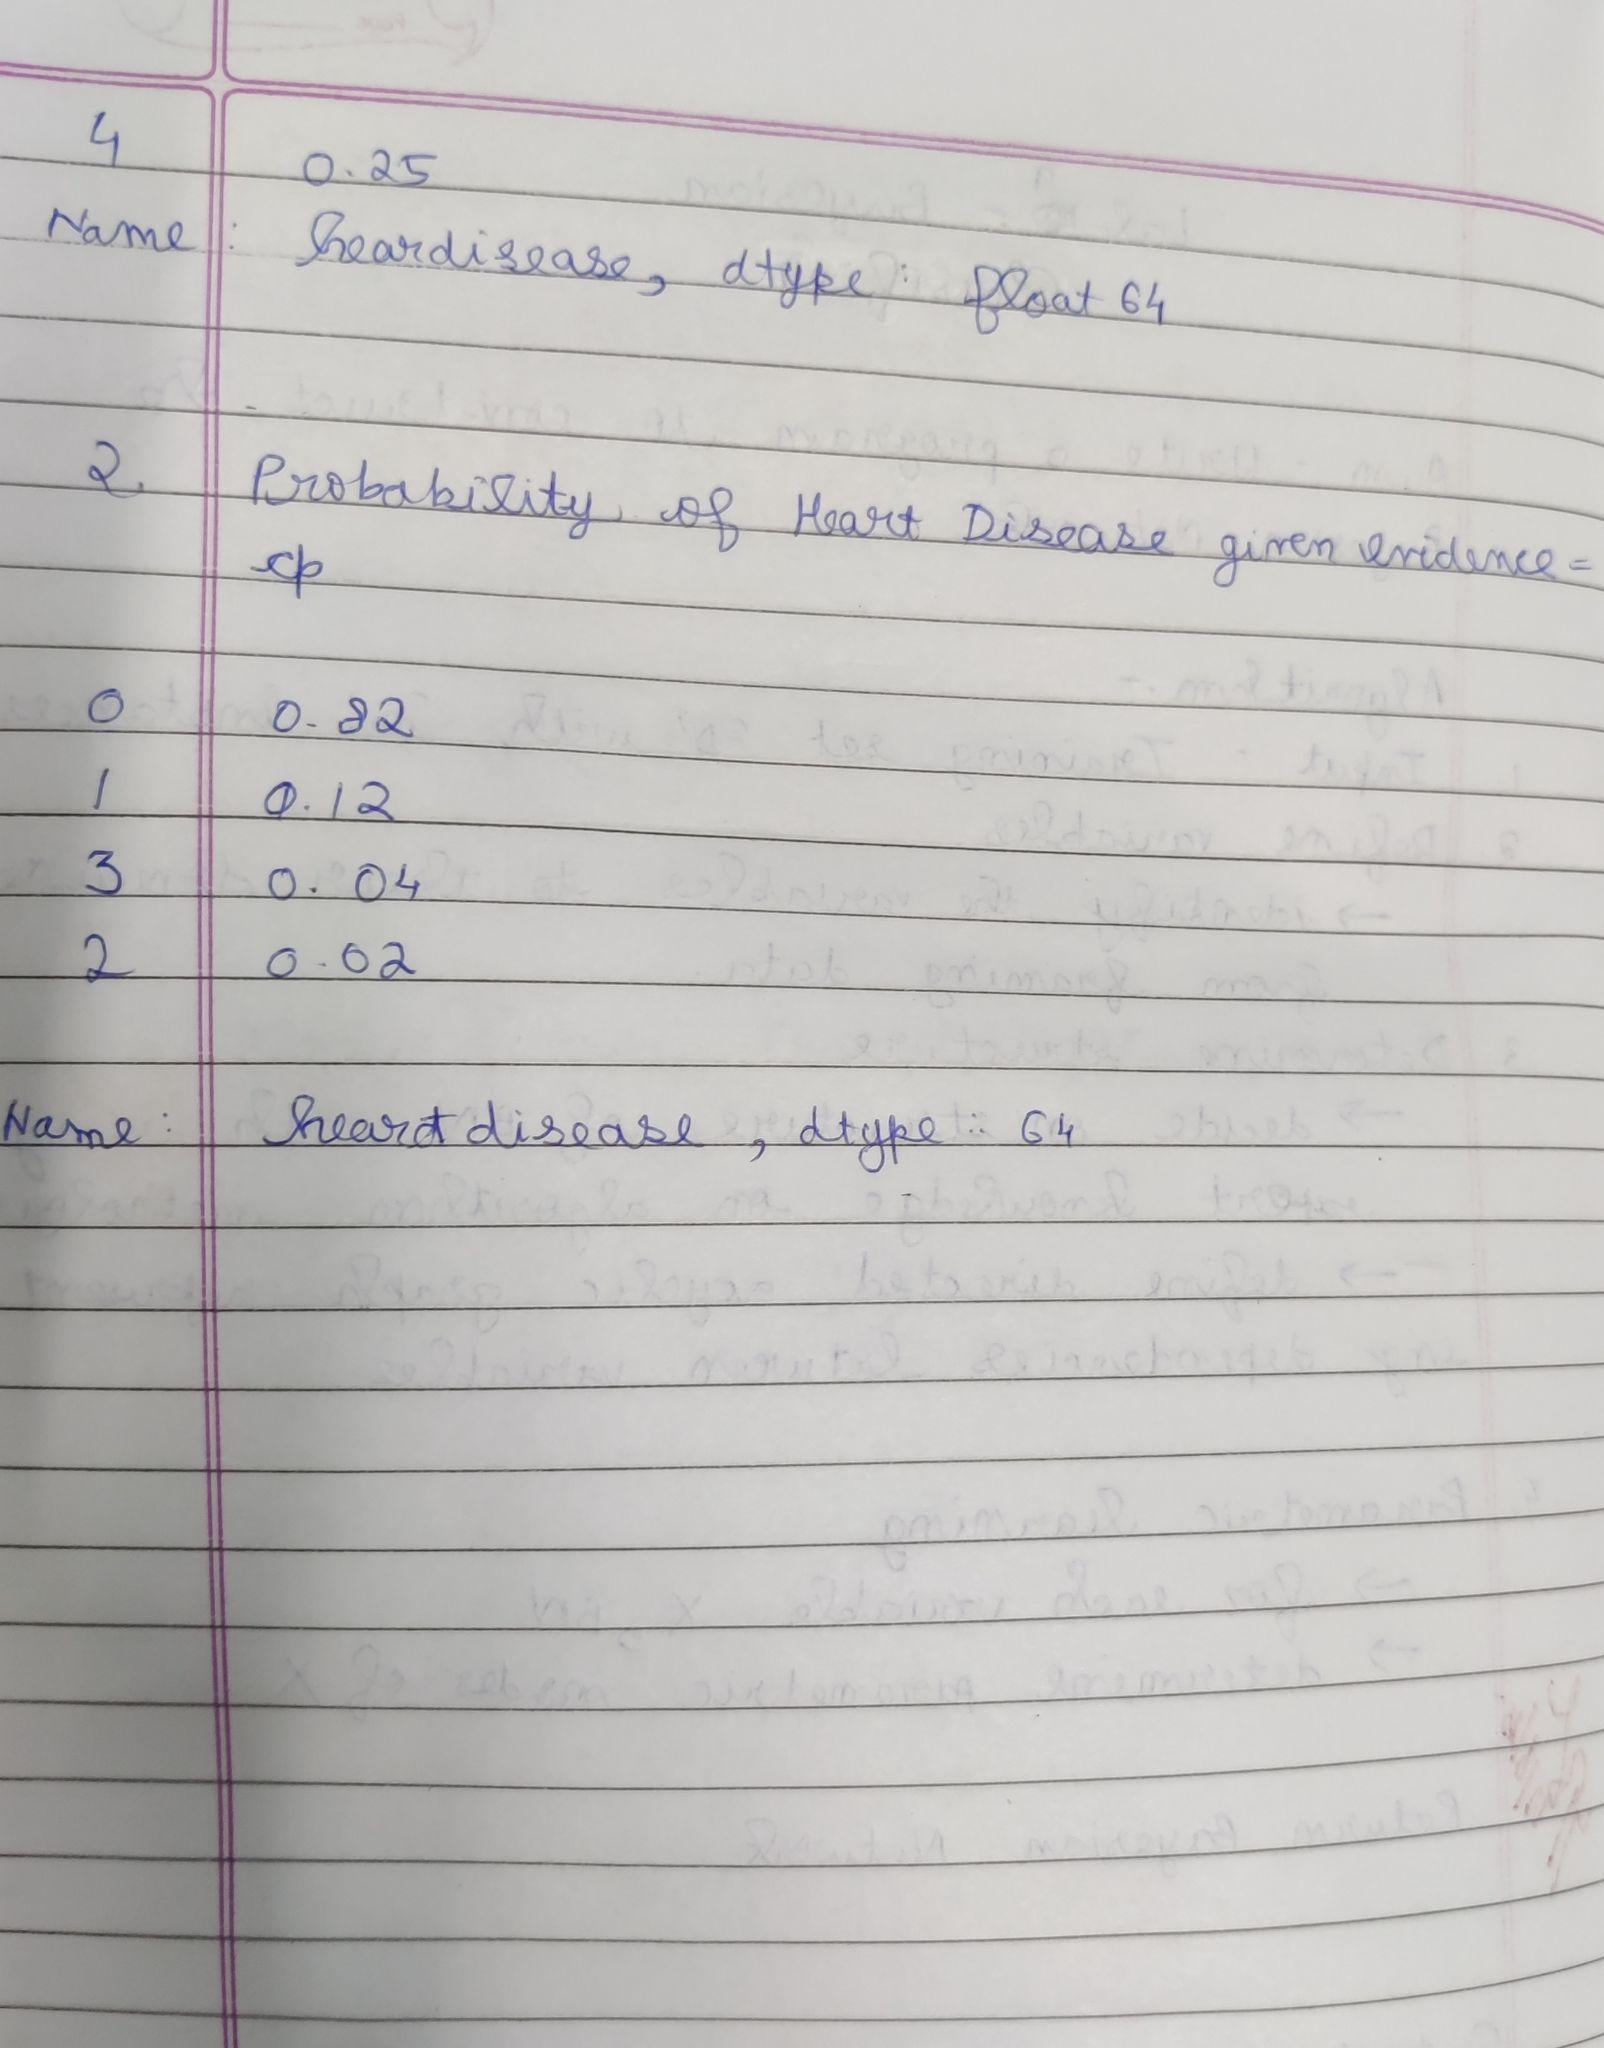 4 0.25
Name : heardisease, dtype: float 64
2. Probability of Heart Disease given evidence =
cp
0 0.82
1 0.12
3 0.04
2 0.02
Name : heartdisease, dtype: 64